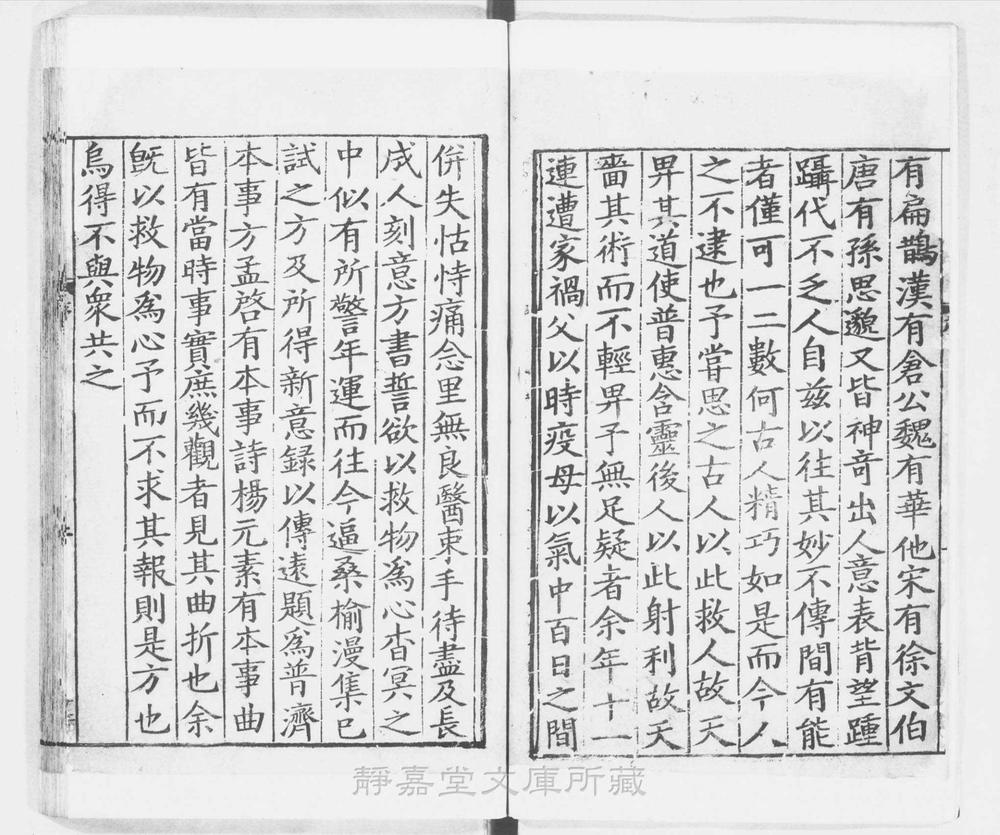 有扁鵲漢有倉公魏有華佗宋有徐文伯
唐有孫思邈又皆神竒出人意表背望踵
躡代不乏人自兹以往其妙不傳間有能
者僅可一二數何古人精巧如是而今人
之不逮也予嘗思之古人以此救人故天
畀其道使普惠含靈後人以此射利故天
嗇其術而不輕畀予無足疑者余年十一
連遭家禍父以時疫母以氣中百日之間
併失怙恃痛念里無良醫束手待盡及長
成人刻意方書誓欲以救物為心杳冥之
中似有所警年運而往今逼桑榆漫集已
試之方及所得新意録以傳遠題為普濟
本事方孟啓有本事詩楊元素有本事曲
皆有當時事實庶幾觀者見其曲折也余
既以救物為心予而不求其報則是方也
烏得不與衆共之
靜嘉堂文庫所藏